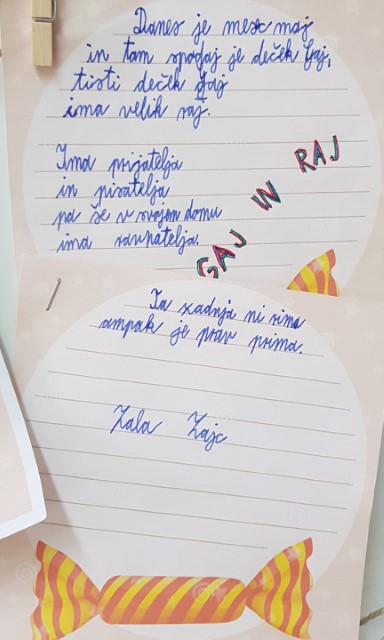 Danes je mesec maj
in tam spodaj je deček Gaj,
tisti deček Gaj
ima velik raj.
Ima prijatelja
in pisatelja
pa še v svojem domu
ima ravnatelja.
GAJ IN RAJ
Ta zadnja ni rima
ampak je prav prima.
Zala Zajc